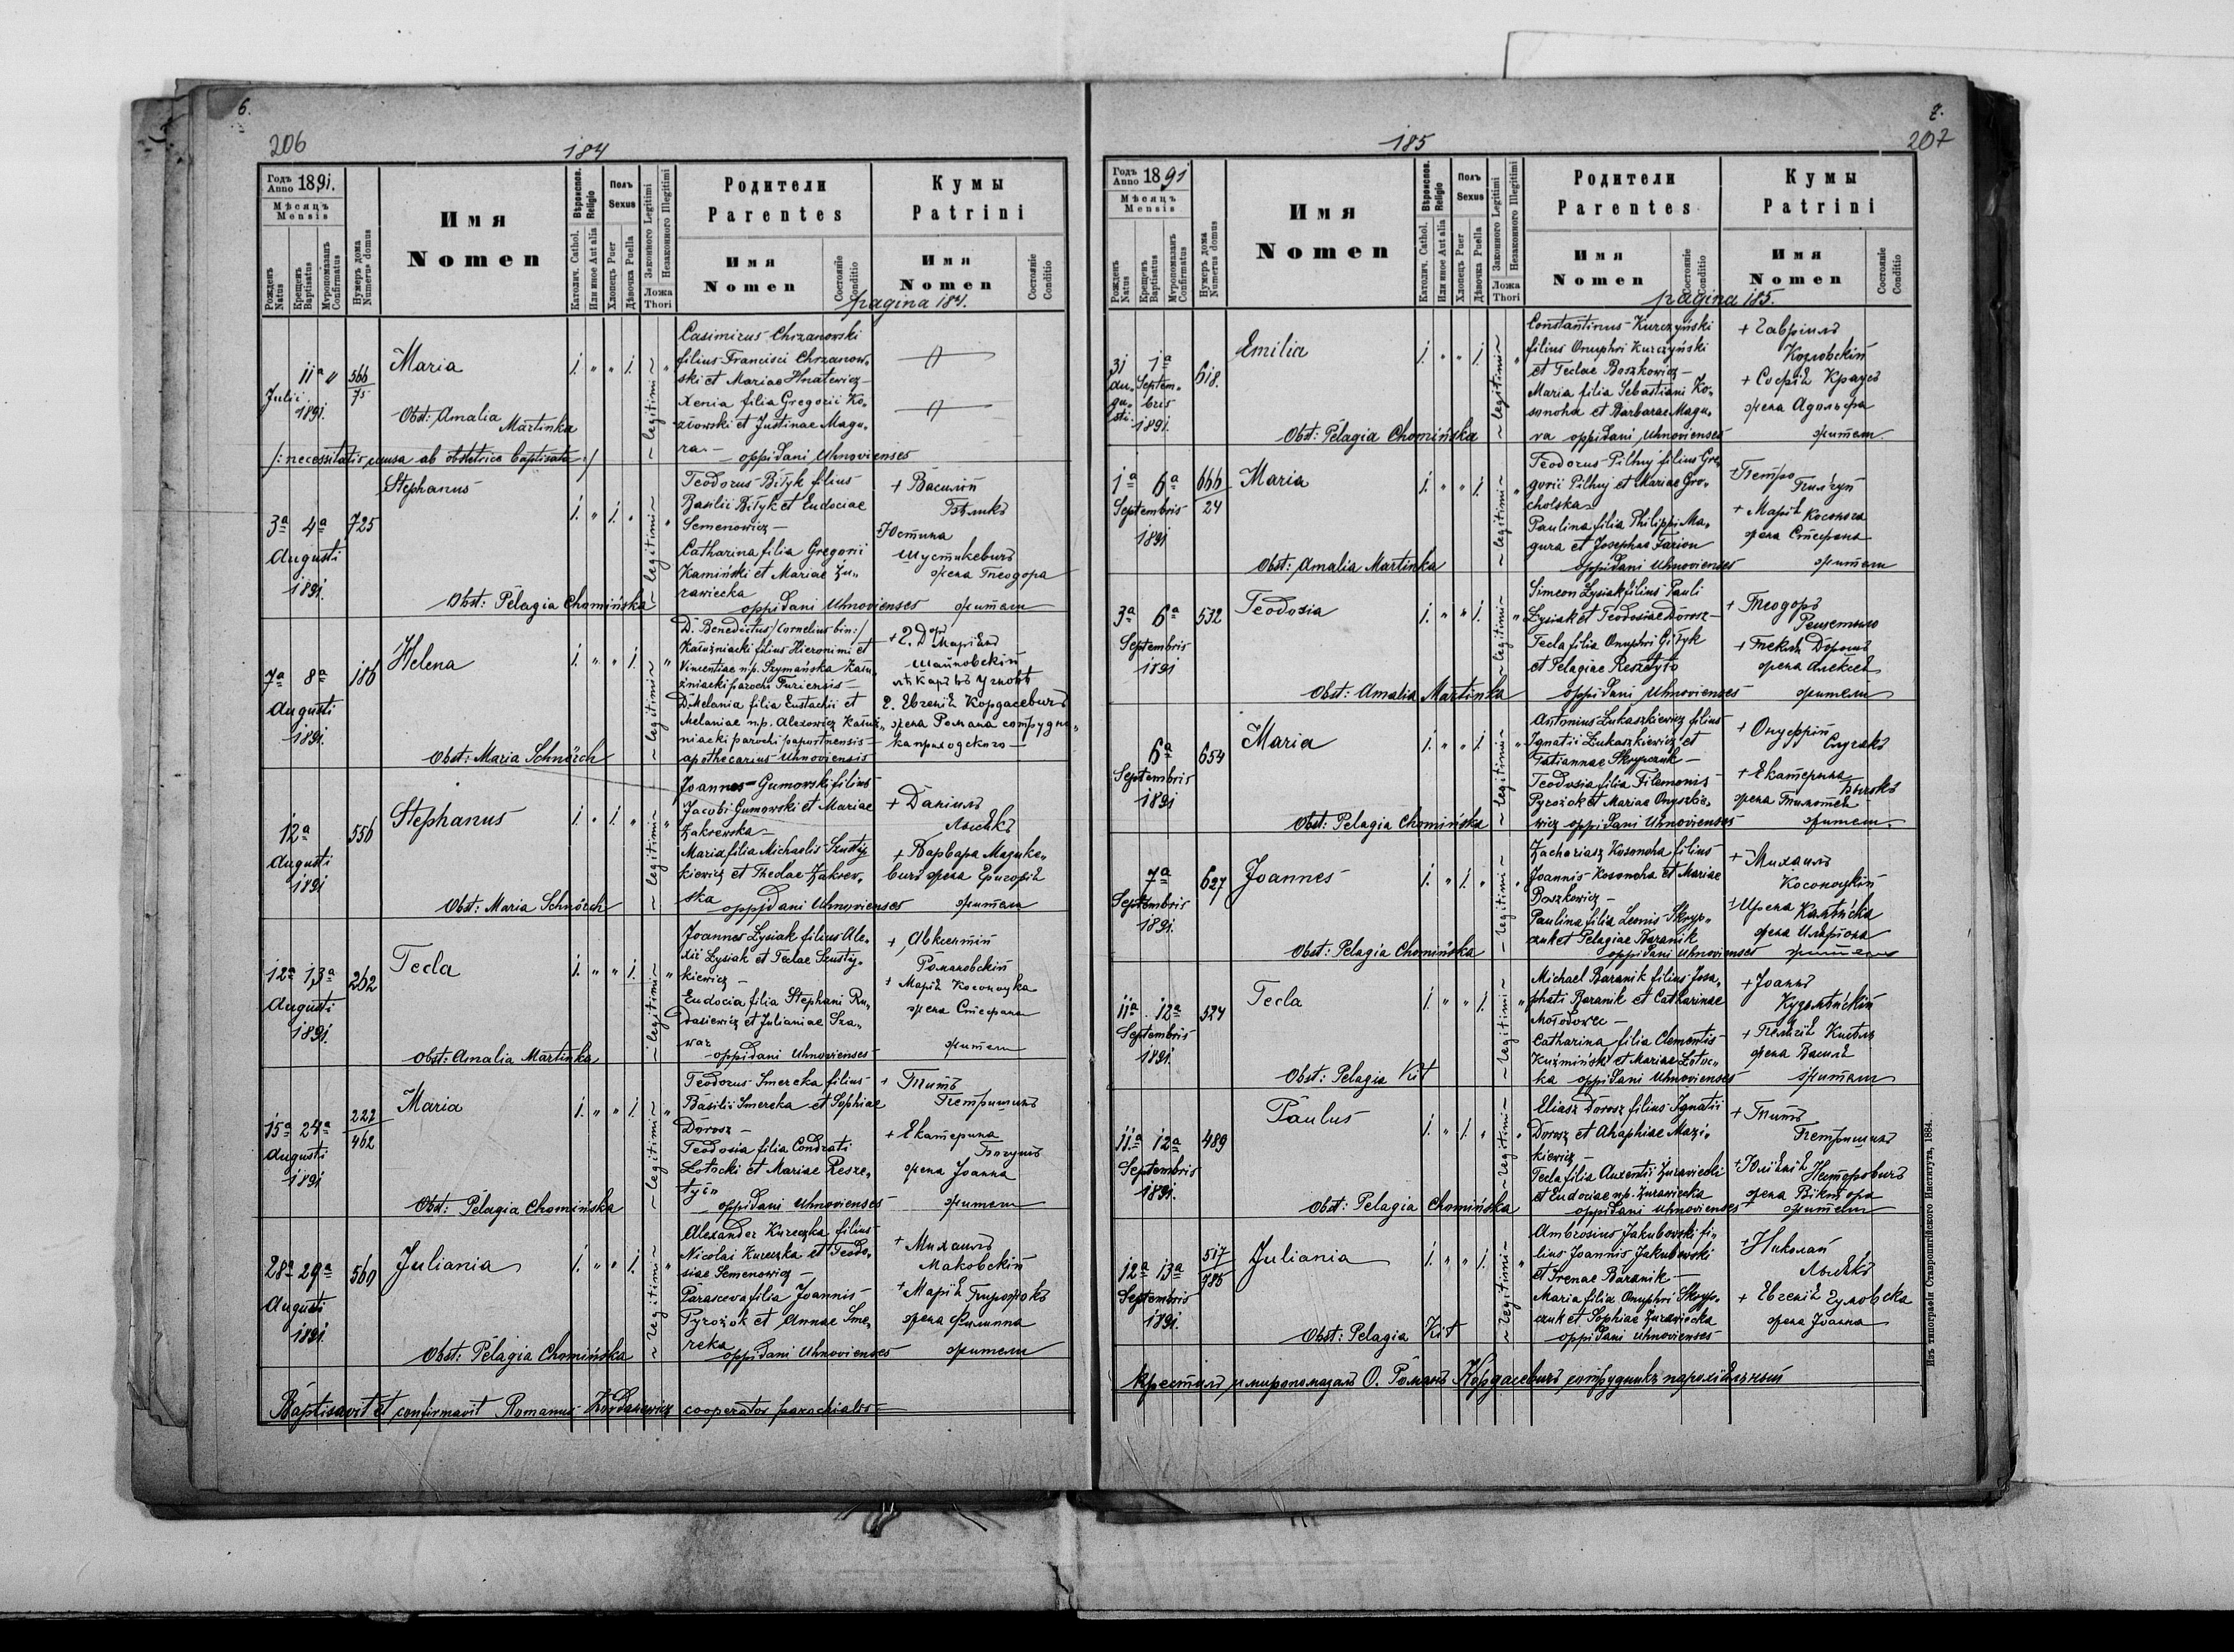 6.
206
184
Годъ Anno 1891.
Мѣсяцъ Mensis
Рожденъ Natus
Крещенъ Baptisatus
Муропомазанъ Confirmatus
Нумеръ дома Numerus domus
Имя
Nomen
Вѣроиспов. Religio
Католич. Cathol.
Или иное Aut alia
Полъ Sexus
Хлопецъ Puer
Дѣвочка Puella
Законного Legitimi
Незаконного Illegitimi
Ложа Thori
Родители
Parentes
Имя Nomen
Состояніе Conditio
Кумы
Patrini
Имя Nomen
Состояніе Conditio
pagina 184.
11a "
Julii
1891.
566
75
Maria
1. " " 1.
legitimi
Obst: Amalia
Martinka
/: necessitatis causa ab obstetrice baptisata :/
Casimirus Chrzanowski
filius Francisci Chrzanow-
ski et Mariae Hnatewicz
Xenia filia Gregorii Ko-
ziowski et Justinae Magu-
ra
oppidani Uhnovienses
3a 4a
Augusti
1891.
725
Stephanus
1. " 1. "
legitimi
Obst: Pelagia Chomińska
Teodorus Biłyk filius
Basilii Biłyk et Eudociae
Semenowicz
Catharina filia Gregorii
Kamiński et Mariae Zu-
rawiecka
oppidani Uhnovienses
+ Василій
Бѣликъ
Юстина
Шустикевичъ
жена Теодора
жители
7a 8a
Augusti
1891.
186
Helena
1. " " 1.
legitimi
Obst: Maria Schnörch
D. Benedictus /Cornelius bin:/
Kałużniacki filius Hieronimi et
Vincentiae n.p. Szymańska Kału-
żniacki parochi Turiensis
D. Melania filia Eustachii et
Melaniae n.p. Alexowicz Kałuż-
niacki parochi
apothecarius Uhnoviensis
+ Г. Дор
Маріянъ
Шайновскій
лѣкаръ въ Угновѣ
Г. Евгенія Кордасевичъ
жена Романа сотрудни-
ка приходского
12a
Augusti
1891
556
Stephanus
1. " 1. "
legitimi
Obst: Maria Schnörch
Joannes Gumowski filius
Jacobi Gumowski et Mariae
Zakrewska
Maria filia Michaelis Szusty-
kiewicz et Theclae Zakrew-
ska
oppidani Uhnovienses
+ Даніилъ
Лысякъ
+ Варвара Мадике-
вичъ жена Григорія
жители
12a 13a
Augusti
1891.
262
Tecla
1. " " 1.
legitimi
Obst: Amalia Martinka
Joannes Łysiak filius Ale-
xii Łysiak et Teclae Szusty-
kiewicz
Eudocia filia Stephani Ru-
dasiewicz et Julianiae Sza-
war
oppidani Uhnovienses
+ Авксентій
Романовскій
+ Марія Косоноцка
жена Стефана
жители
15a 24a
Augusti
1891
222
462
Maria
1. " " 1.
legitimi
Obst: Pelagia Chomińska
Teodorus Smereka filius
Basilii Smereka et Sophiae
Dorosz
Teodosia filia Condrati
Łotocki et Mariae Resze-
tyło
oppidani Uhnovienses
+ Титъ
Петришинъ
+ Екатерина
жена Іоанна
жители
28a 29a
Augusti
1891.
560
Juliania
1. " " 1.
legitimi
Obst: Pelagia Chomińska
Alexander Kureczka filius
Nicolai Kureczka et Teodo-
siae Semenowicz
Parasceva filia Joannis
Pyrożok et Annae Sme-
reka
oppidani Uhnovienses
+ Михаилъ
Маковскій
+ Марія Пирожокъ
жена Филиппа
жители
Baptisavit et confirmavit Romanus Kordasiewicz cooperator parochialis
7.
207
185
Годъ Anno 1891
Мѣсяцъ Mensis
Рожденъ Natus
Крещенъ Baptisatus
Муропомазанъ Confirmatus
Нумеръ дома Numerus domus
Имя
Nomen
Вѣроиспов. Religio
Католич. Cathol.
Или иное Aut alia
Полъ Sexus
Хлопецъ Puer
Дѣвочка Puella
Законного Legitimi
Незаконного Illegitimi
Ложа Thori
Родители
Parentes
Имя Nomen
Состояніе Conditio
Кумы
Patrini
Имя Nomen
Состояніе Conditio
pagina 185.
31 1a
Au- Septem-
gu- bris
sti 1891.
618.
Emilia
1. " " 1.
legitimi
Obst: Pelagia Chomińska
Constantinus Kurczyński
filius Onuphri Kurczyński
et Teclae Boszkowicz
Maria filia Sebastiani Ko-
sonoha et Barbarae Magu-
ra oppidani Uhnovienses
+ Гавріилъ
Козловскій
+ Софія Краусъ
жена Адольфа
жители
1a 6a
Septembris
1891
666
24
Maria
1. " " 1.
legitimi
Obst: Amalia Martinka
Teodorus Pilhuj filius Gre-
gorii Pilhuj et Mariae Gro-
cholska
Paulina filia Philippi Ma-
gura et Josephae Farion
oppidani Uhnovienses
+ Петро
Пилгуй
+ Марія Косонога
жена Стефана
жители
3a 6a
Septembris
1891
532
Teodosia
1. " " 1.
legitimi
Obst: Amalia Martinka
Simeon Łysiak filius Pauli
Łysiak et Teodosiae Dorosz
Tecla filia Onuphri Giłyk
et Pelagiae Reszetyło
oppidani Uhnovienses
+ Теодоръ
Решетило
+ Текля Дорошъ
жена Алексѣя
жители
6a
Septembris
1891
654
Maria
1. " " 1.
legitimi
Obst: Pelagia Chomińska
Antonius Łukaszkiewicz filius
Ignatii Łukaszkiewicz et
Tatiannae Skrypczuk
Teodosia filia Filemonis
Pyrożok et Mariae Onyszkie-
wicz oppidani Uhnovienses
+ Онуфрій
+ Екатерина
жители
7a
Septembris
1891.
627
Joannes
1. " 1. "
legitimi
Obst: Pelagia Chomińska
Zachariasz Kosonoha filius
Joannis Kosonoha et Mariae
Boszkowicz
Paulina filia Leonis Skryp-
czuk et Pelagiae Baranik
oppidani Uhnovienses
+ Михаилъ
Косоноцкій
+ Ирена
жена Иларіона
жители
11a 12a
Septembris
1891.
524
Tecla
1. " " 1.
legitimi
Obst: Pelagia Kit
Michael Baranik filius Josa-
phati Baranik et Catharinae
Mołodowec
Catharina filia Clementis
Kuźmiński et Mariae Łotoc-
ka oppidani Uhnovienses
+ Іоаннъ
Кузьмѣнскій
+ Пелагія
жена Василя
жители
11a 12a
Septembris
1891.
489
Paulus
1. " 1. "
legitimi
Obst: Pelagia Chomińska
Eliasz Dorosz filius Ignatii
Dorosz et Ahaphiae Mazi-
kiewicz
Tecla filia Auxentii Zurawiecki
et Eudociae n.p. Zurawiecka
oppidani Uhnovienses
+ Титъ
Петришинъ
+ Юліянія Несторовичъ
жена Віктора
жители
12a 13a
Septembris
1891.
517
785
Juliania
1. " " 1.
legitimi
Obst: Pelagia Kit
Ambrosius Jakubowski fi-
lius Joannis Jakubowski
et Irenae Baranik
Maria filia Onuphri Skryp-
czuk et Sophiae Zurawiecka
oppidani Uhnovienses
+ Николай
Лысякъ
+ Евгенія Гумовска
жена Іоанна
Крестилъ и миропомазалъ О. Романъ Кордасевичъ сотрудникъ парохіяльный
Изъ типографіи Ставропигійского Института, 1884.